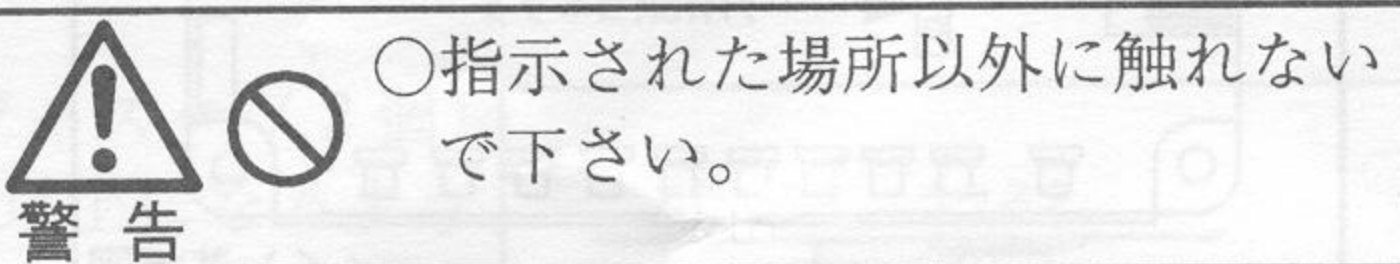 ○指示された場所以外に触れない
で下さい。
警告